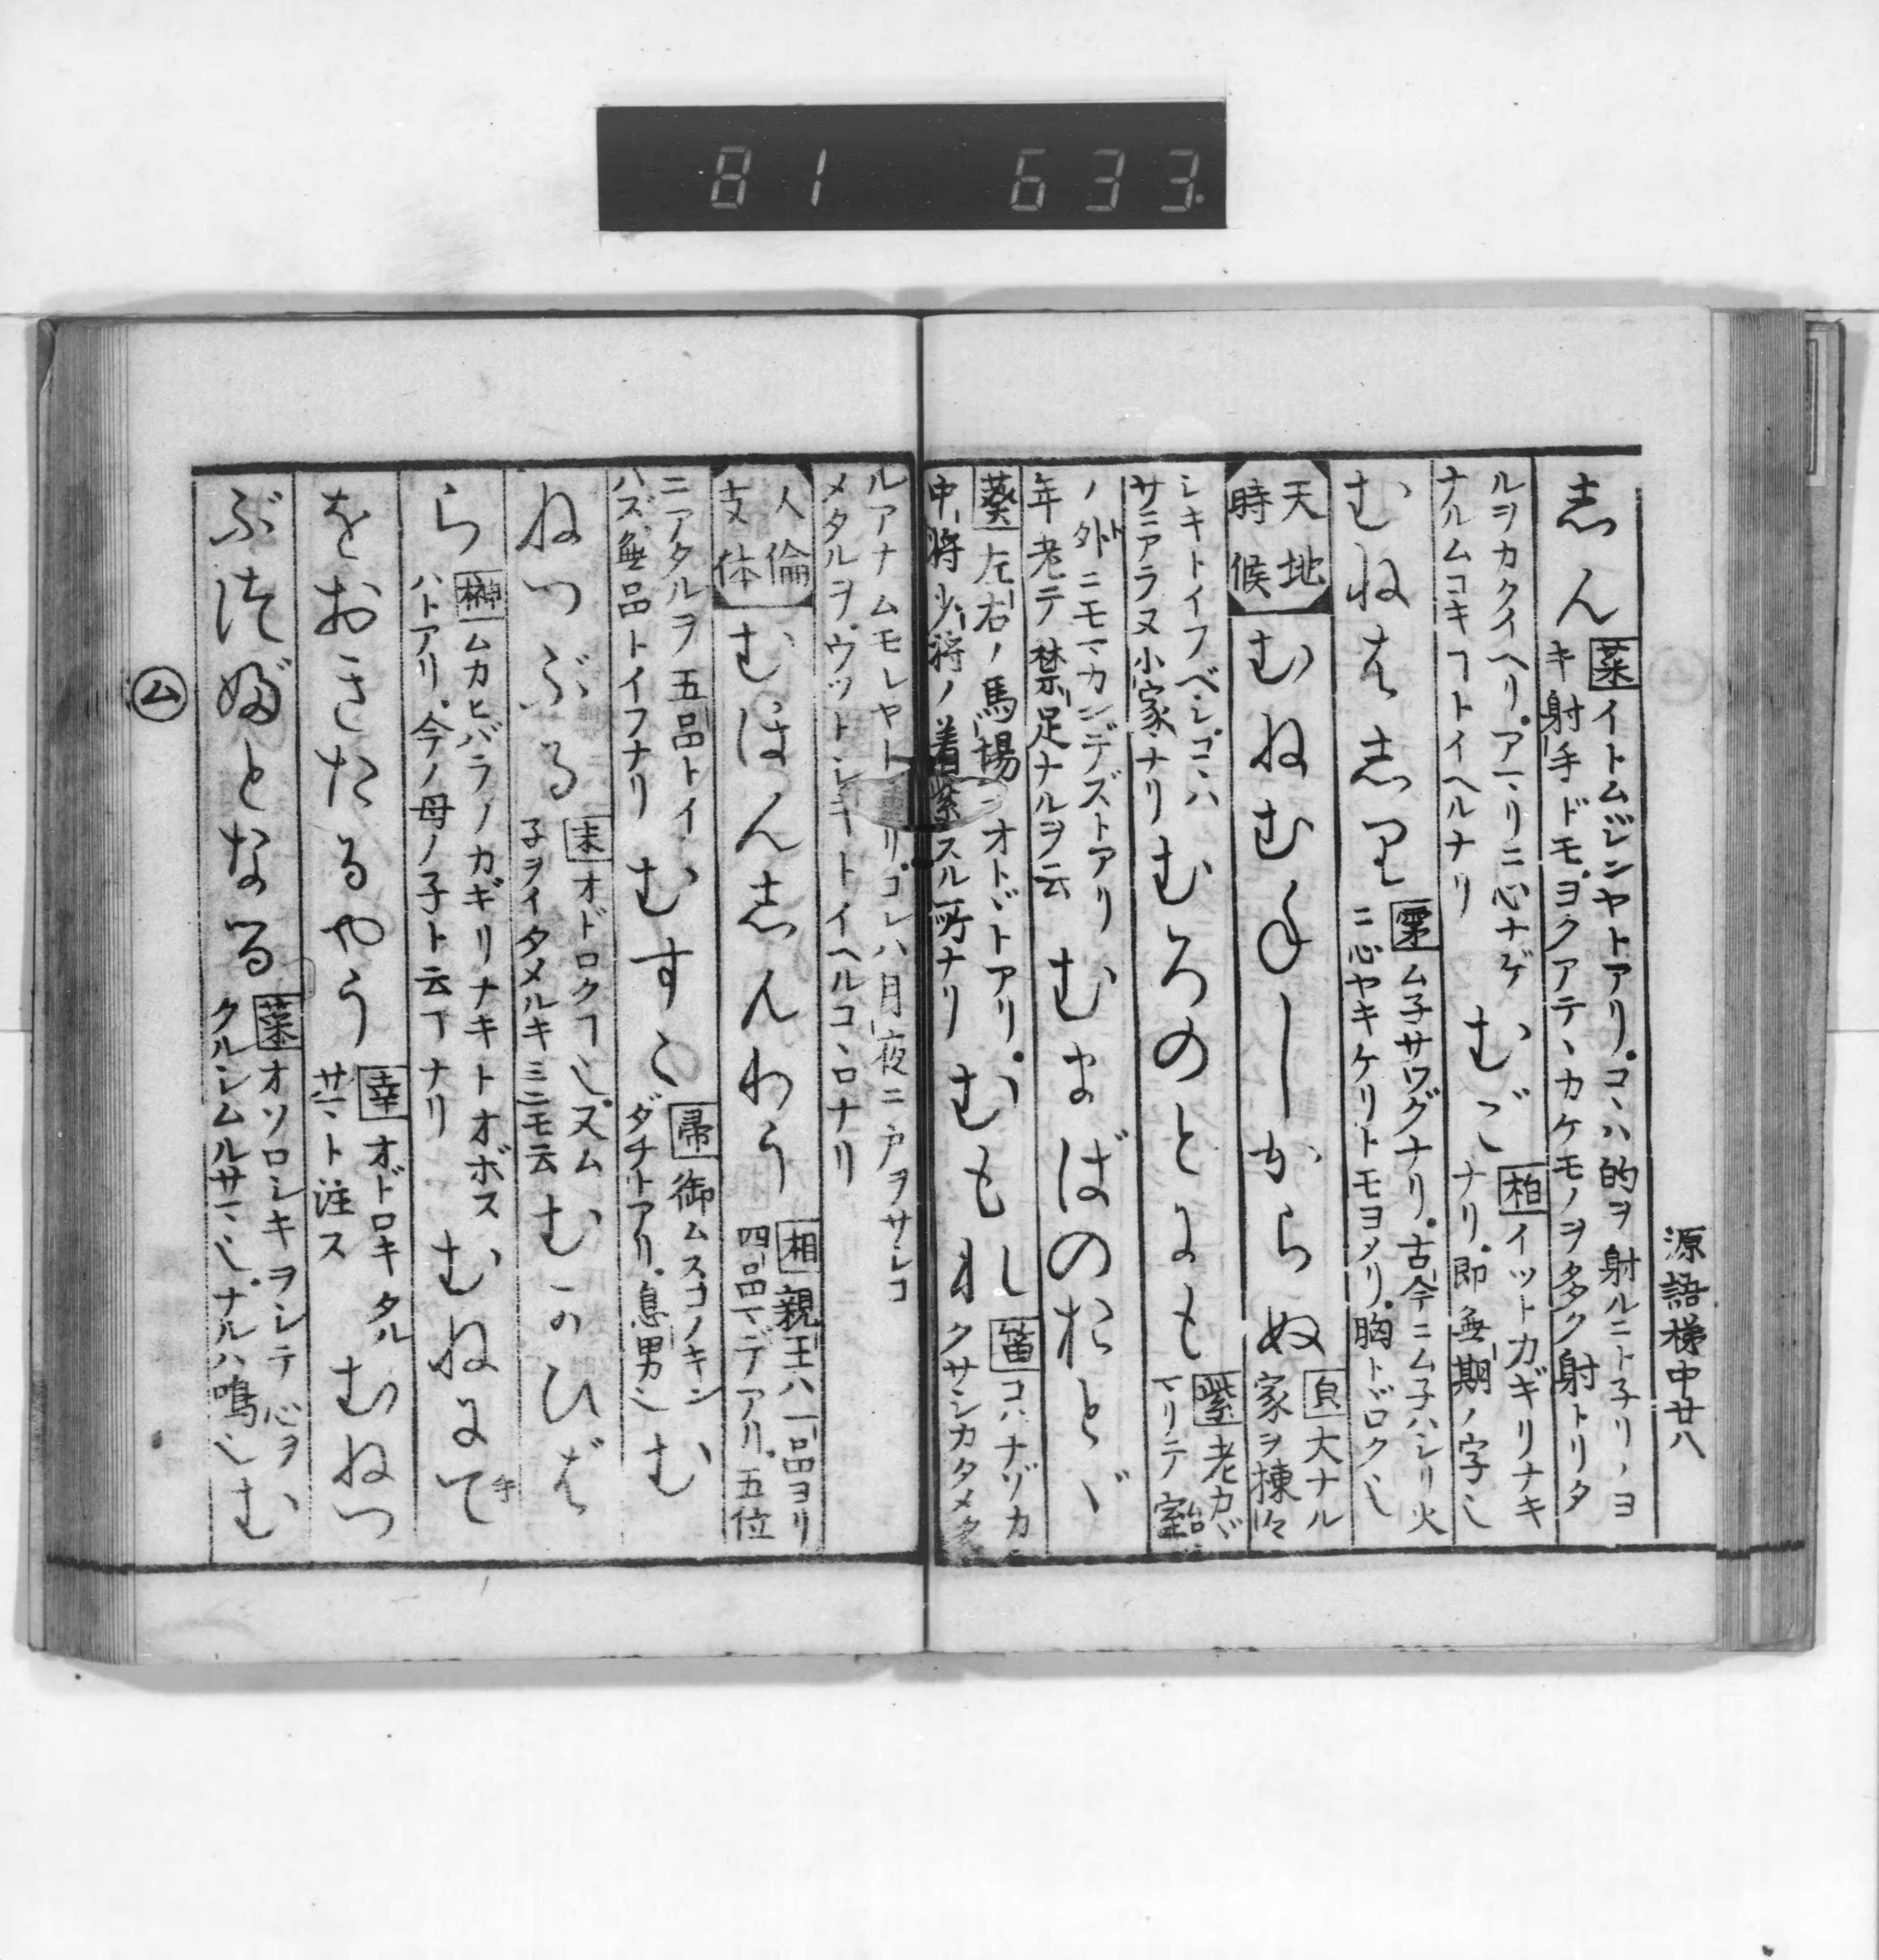 81 633
源語梯中廿八
志ん
菜 イトムジンヤトアリ。コヽハ的ヲ射ルニト子リヽヨ
キ射手ドモ。ヨクアテヽカケモノヲ多ク射トリタ
ルヲカクイヘリ。アマリニ心ナゲ
ナルムコキヿトイヘルナリ
むご
柏 イットカギリナキ
ナリ。即無期ノ字也
むねはしり
ム子サワグナリ。古今ニム子ハシリ火
ニ心ヤキケリトモヨメリ。胸トドロク也
天地
時候
むねむねしからぬ
大ナル
家ヲ棟々
シキトイフベシ。コヽハ
サニアラヌ小家ナリ
むろのとにも
紫 老カヾ
マリテ室
ノ外ニモマカンデズトアリ
年老テ禁足ナルヲ云
むまばのおとゞ
葵 左右ノ馬場ニオトヾトアリ。
中将少将ノ着スル所ナリ
むもれ
笛 コハナゾカ
クサシカタメタ
ルアナムモレヤト アリ。コレハ月夜ニ戸ヲサシコ
メタルヲ。ウットシキトイヘルコヽロナリ
人倫
支体
むほんしんわう
相 親王ハ一品ヨリ
四品マデアリ。五位
ニアタルヲ五品トイ
ハズ無品トイフナリ
むすこ
帚 御ムスコノキン
ダチトアリ。息男也
む
ねつぶる
末 オドロクヿ也。又ム
子ヲイタメルキミニモ云
むかひば
ら
榊 ムカヒバラノカギリナキトオボス
ハトアリ。今ノ母ノ子ト云ヿナリ
むねにて
をおきたるやう
幸 オドロキタル
サマト注ス
むねつ
ぶつぶとなる
菜 オソロシキヲシテ心ヲ
クルシムルサマ也。ナルハ鳴也
む
ム